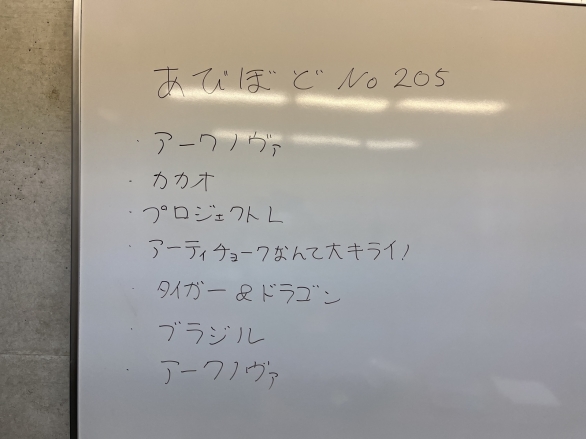 あびぼど No 205
・アークノヴァ
・カカオ
・プロジェクトL
・アーティチョークなんて大キライ!
・タイガー&ドラゴン
・ブラジル
・アークノヴァ